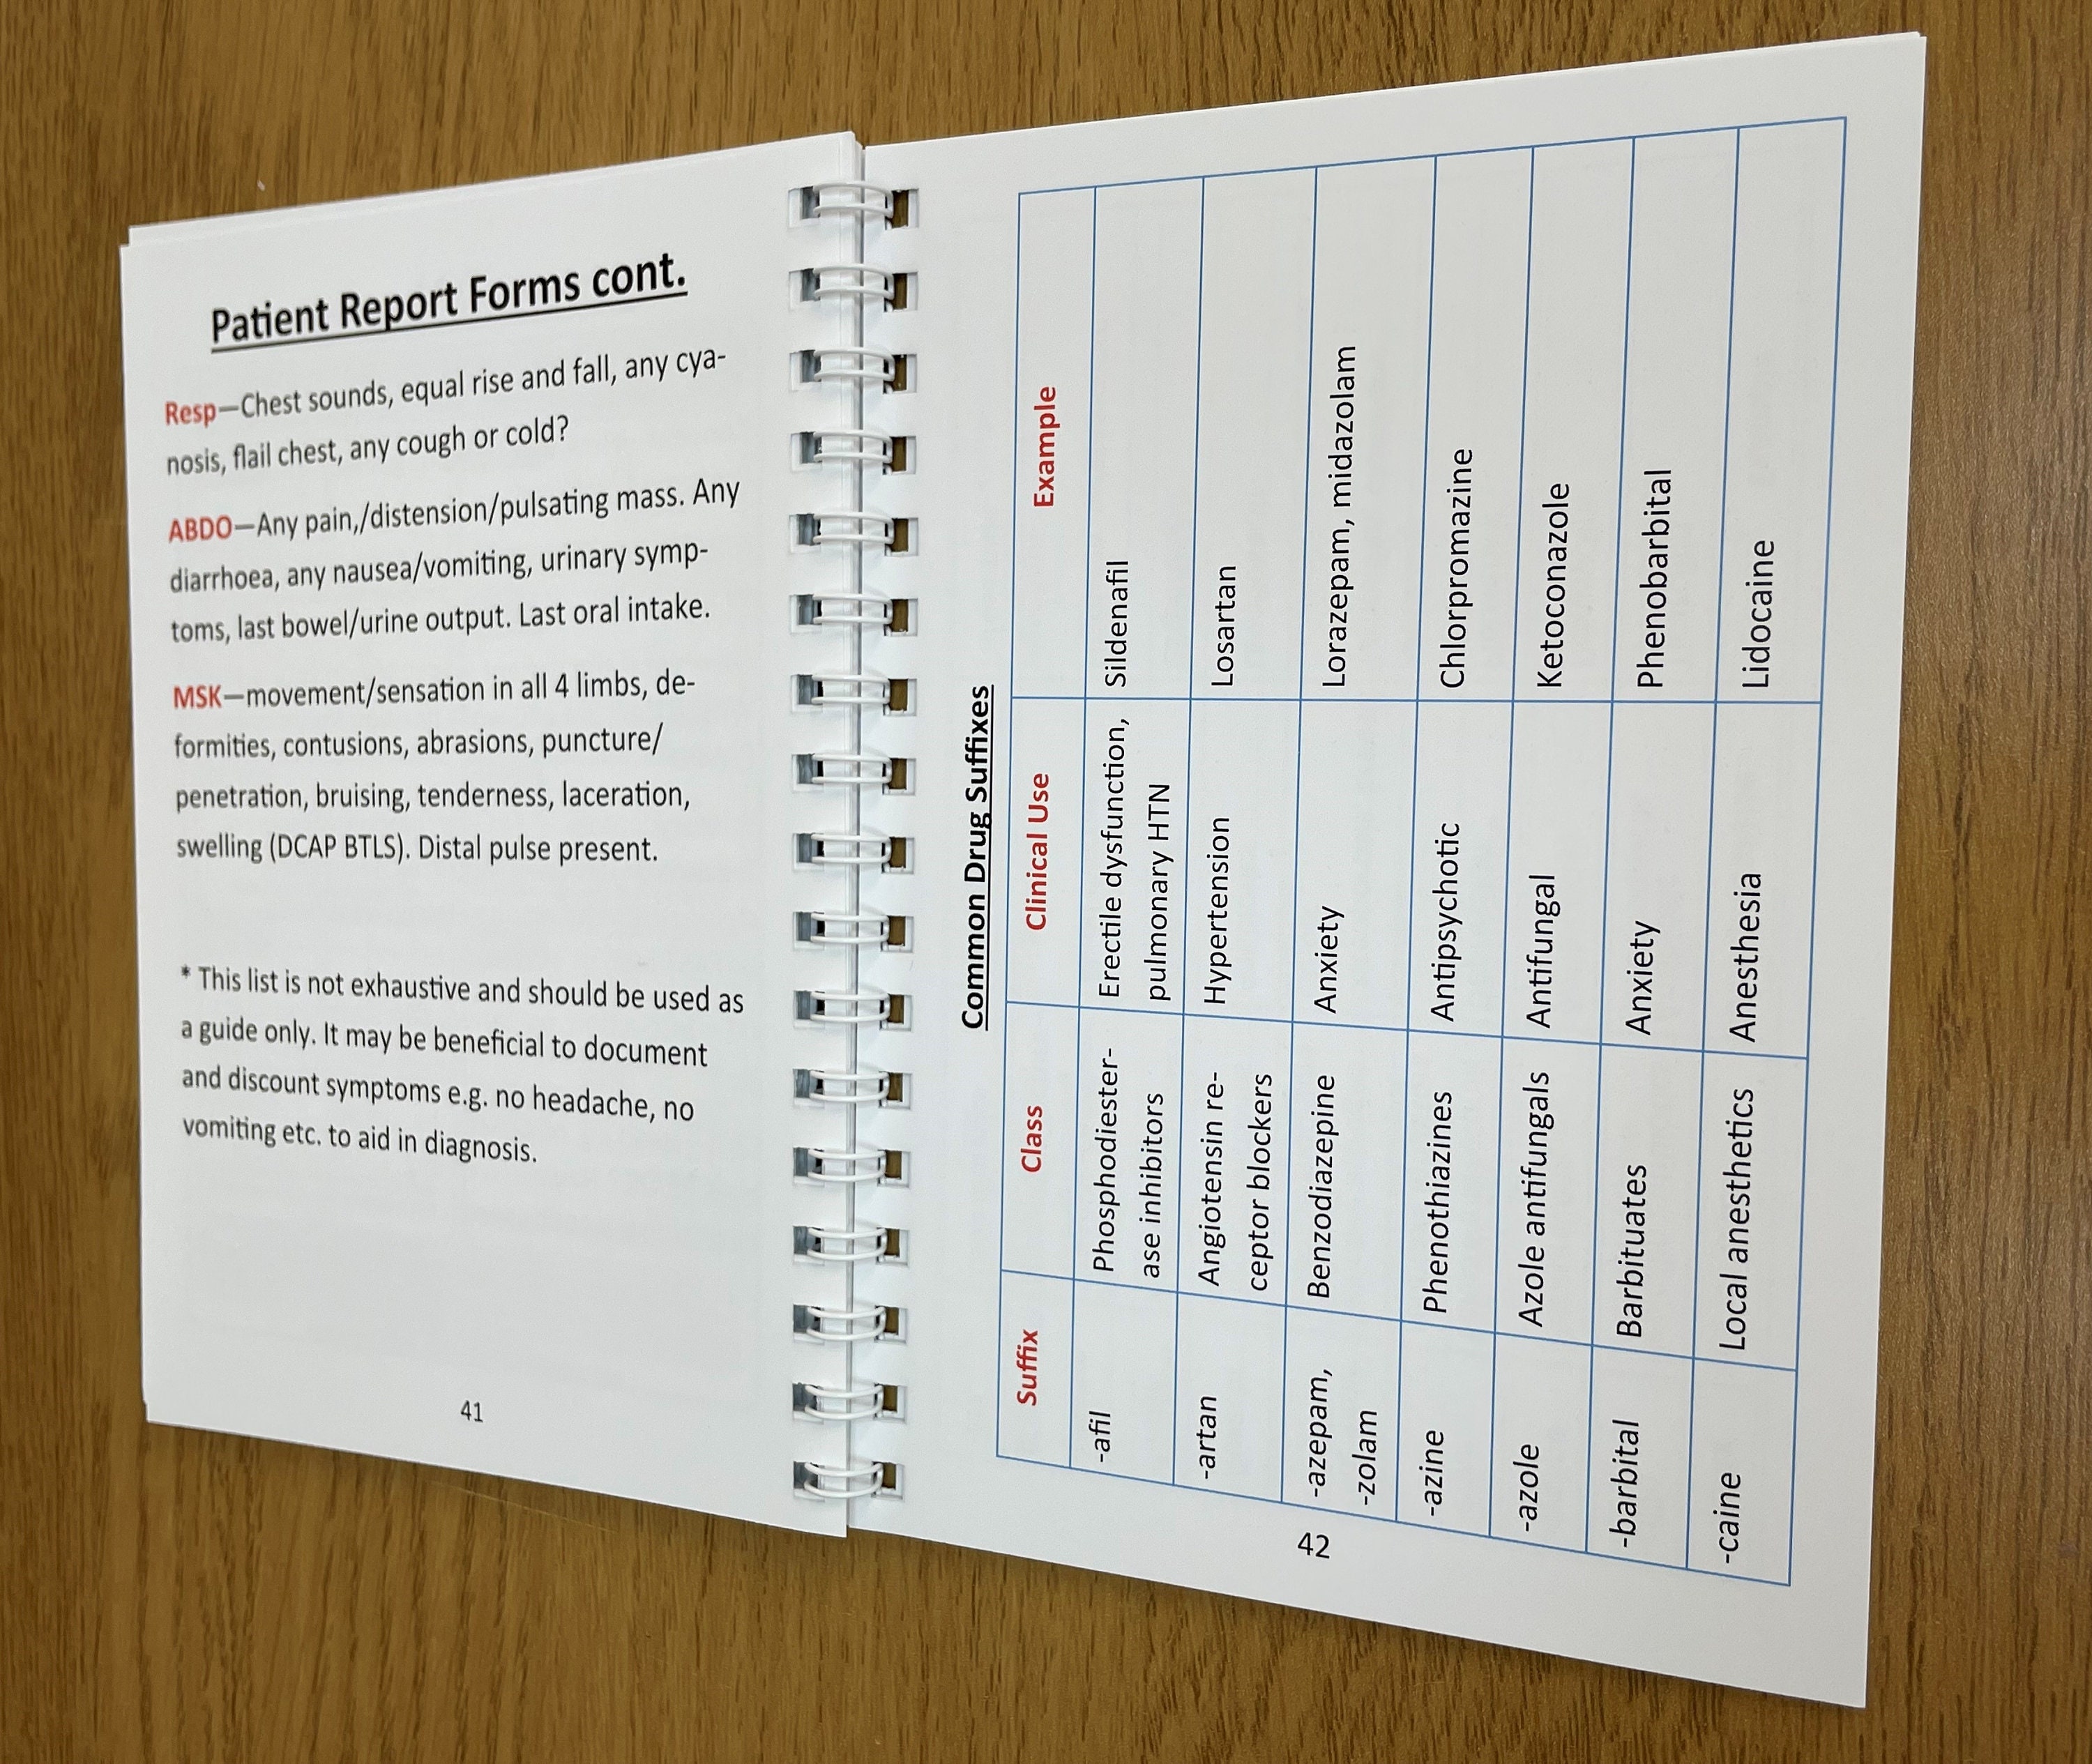 Patient Report Forms cont.
Resp—Chest sounds, equal rise and fall, any cya-
nosis, flail chest, any cough or cold?
ABDO—Any pain,/distension/pulsating mass. Any
diarrhoea, any nausea/vomiting, urinary symp-
toms, last bowel/urine output. Last oral intake.
MSK—movement/sensation in all 4 limbs, de-
formities, contusions, abrasions, puncture/
penetration, bruising, tenderness, laceration,
swelling (DCAP BTLS). Distal pulse present.
* This list is not exhaustive and should be used as
a guide only. It may be beneficial to document
and discount symptoms e.g. no headache, no
vomiting etc. to aid in diagnosis.
41
Common Drug Suffixes
Suffix Class Clinical Use Example
-afil Phosphodiester- Erectile dysfunction, Sildenafil
ase inhibitors pulmonary HTN
-artan Angiotensin re- Hypertension Losartan
ceptor blockers
-azepam, Benzodiazepine Anxiety Lorazepam, midazolam
-zolam
-azine Phenothiazines Antipsychotic Chlorpromazine
-azole Azole antifungals Antifungal Ketoconazole
-barbital Barbituates Anxiety Phenobarbital
-caine Local anesthetics Anesthesia Lidocaine
42